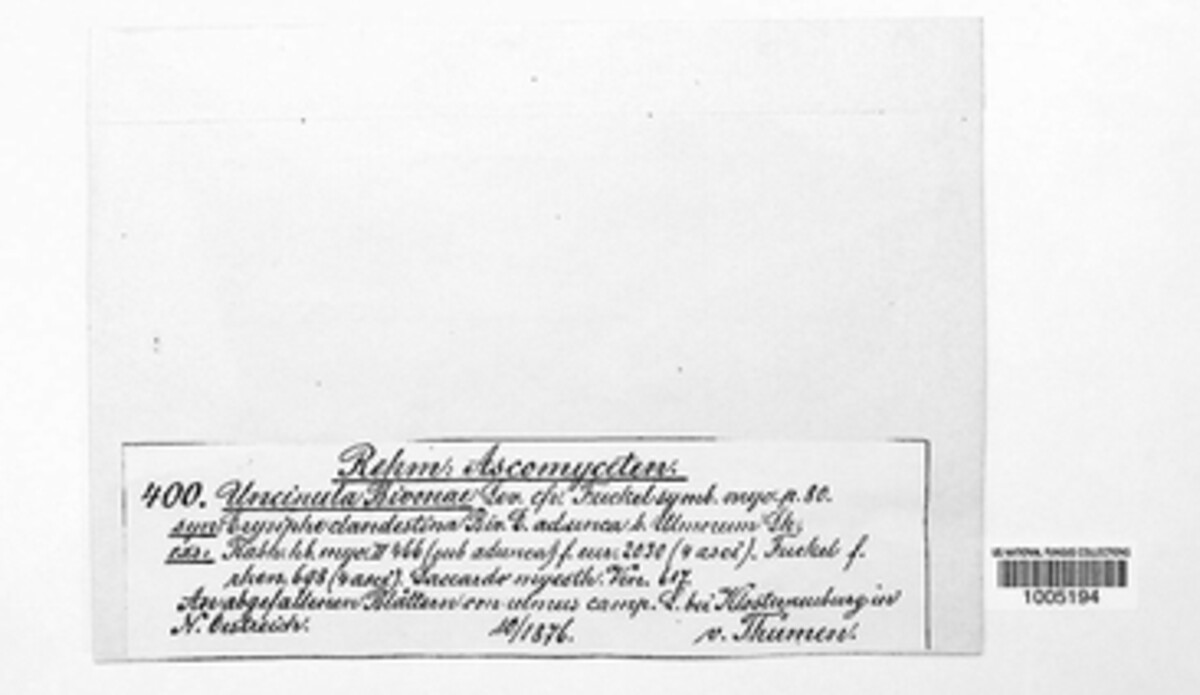 Rehm: Ascomyceten.
400. Uncinula Bivonae Lev. cfr. Fuckel symb. myc. p. 80.
syn Erysiphe clandestina Biv. E. adunca b. Ulmorum Lk,
exs: Rabh. hb. myc. II 466 (sub adunca) f. eur. 2030 (4 asci). Fuckel f.
rhen. 698 (4 asci). Saccardo mycoth. Ven. 617
An abgefallenen Blättern von ulmus camp. L. bei Klosterneuburg in
N. Oestreich. 10/1876. v. Thümen.
US NATIONAL FUNGUS COLLECTIONS
1005194